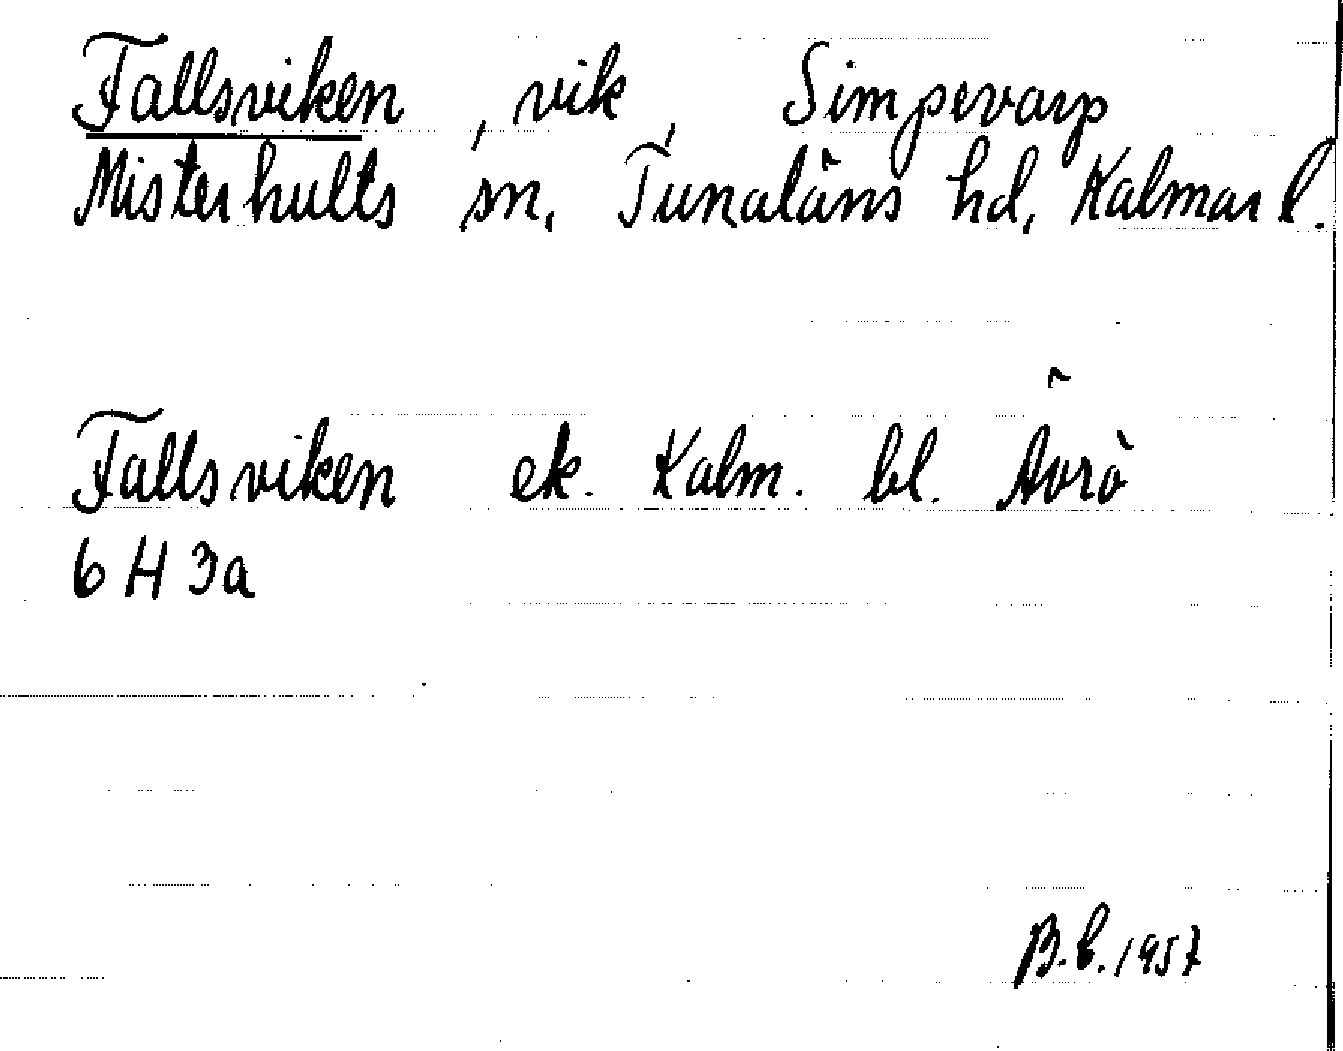 Fallsviken , vik , Simpevarp
Misterhults sn. Tunaläns hd, Kalmar l.
Fallsviken ek. Kalm. bl. Ävrö
6 H 3a
B.E. 1957